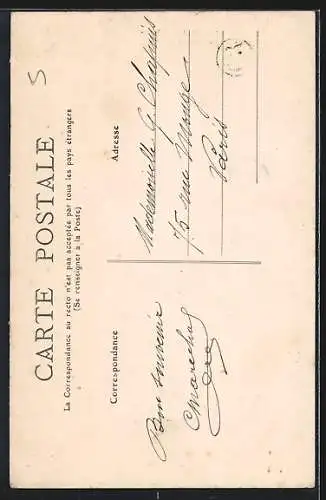 S
CARTE POSTALE
La Correspondance au recto n'est pas acceptée par tous les pays étrangers
(Se renseigner à la Poste)
Correspondance
Adresse
Bon souvenir
Marechal
Mademoiselle G Chapuis
75 rue Monge
Paris